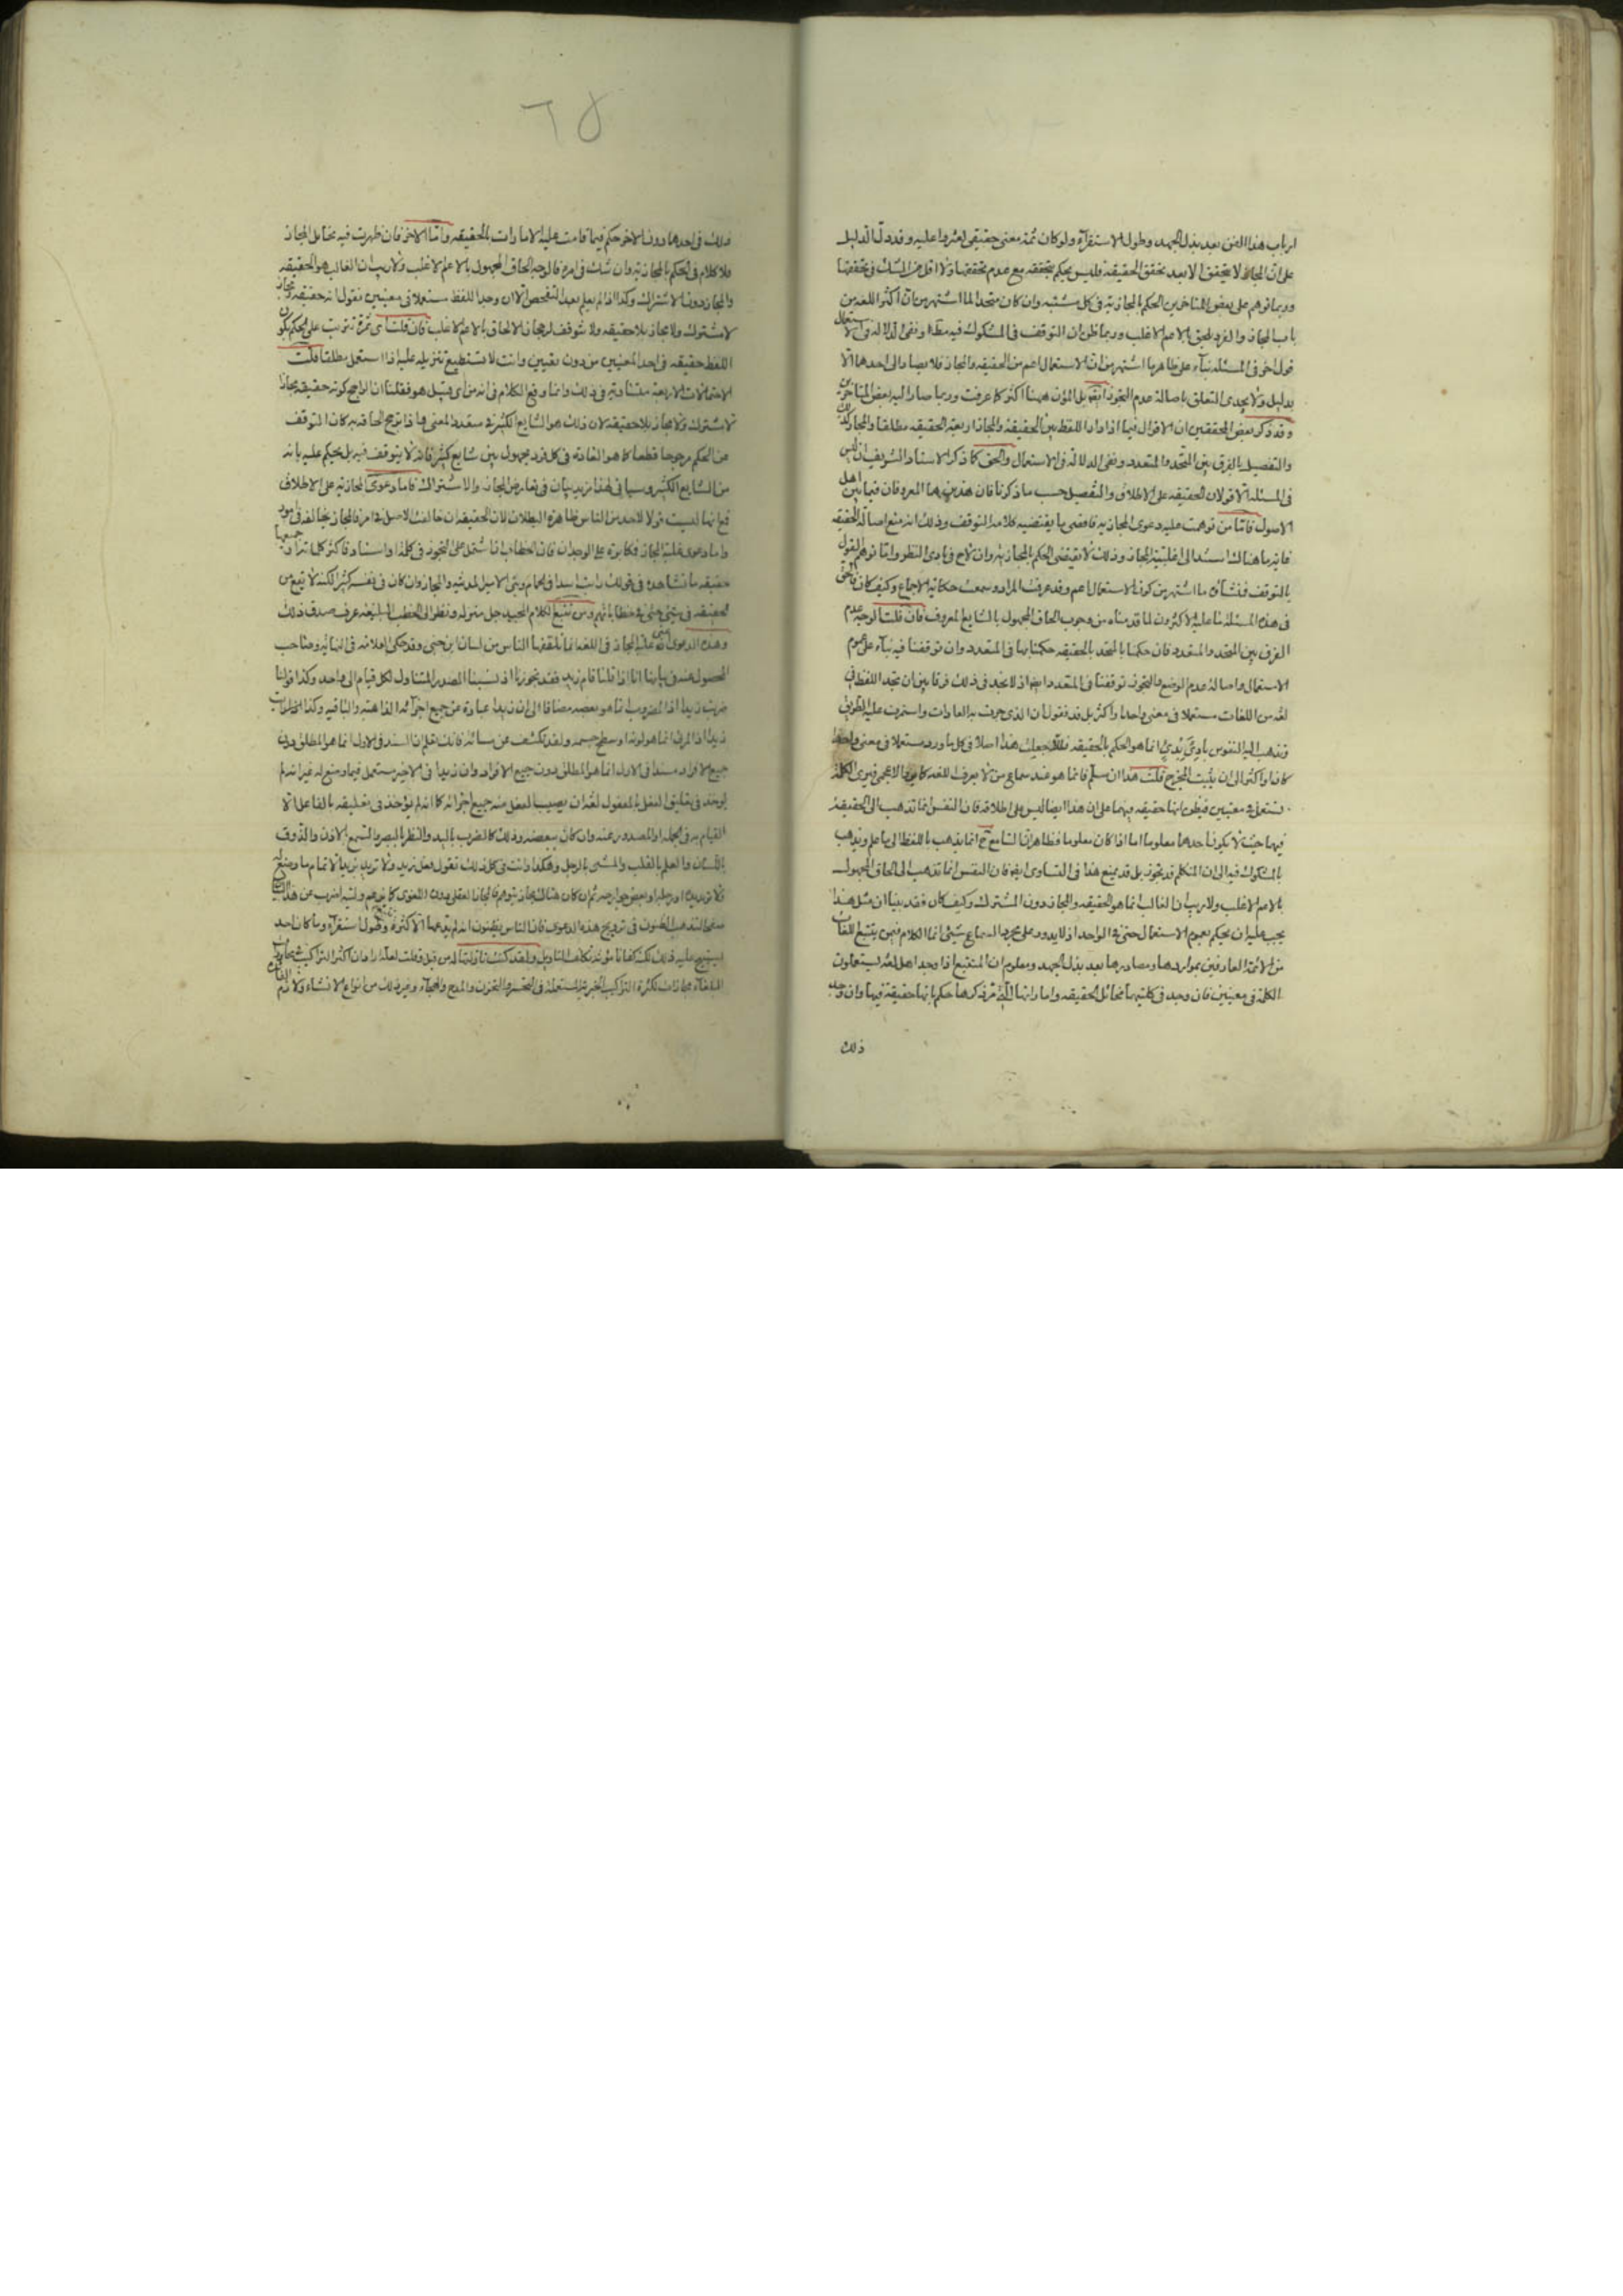 ارباب هذا الفن بعد بذل الجهد وطول الاستقرآء ولو كان ثمة معنى حقيقى لعثروا عليه وقد دل الدليل
على ان المجاز لا يتحقق الا بعد تحقق الحقيقة فليس يحكم بتحققه مع عدم تحققها ولا اقل من الشك فى تحققها
وربما توهم على بعض المتاخرين الحكم بالمجازية فى كل مشتبه وان كان متحدا لما اشتهر من ان اكثر اللغة من
باب المجاز والفرد يلحق بالاعم الاغلب وربما ظن ان التوقف فى المشكوك فيه مطلقا ونفى الدلالة فى الاستعمال
قول اخر فى المسئلة بنآء على ظاهر ما اشتهر من ان الاستعمال اعم من الحقيقة والمجاز فلا يصار الى احدهما الا
بدليل ولا يجدى التعلق باصالة عدم التجوز بل المؤن ههنا اكثر كما عرفت وربما صار اليه بعض المتاخرين
وقد ذكر بعض المحققين ان الاقوال فيما اذا دار اللفظ بين الحقيقة والمجاز اربعة الحقيقة مطلقا والمجاز كذلك
والتفصيل بالفرق بين المتحد والمتعدد ونفى الدلالة فى الاستعمال والحق كما ذكر الاستاد الشريف ان ليس
فى المسئلة الا قولان الحقيقة على الاطلاق والتفصيل حسب ما ذكرنا فان هذين هما المعروفان فيما بين اهل
الاصول فاما من توهمت عليه دعوى المجازية فاقصى ما يقتضيه كلامه التوقف وذلك انه منع اصالة الحقيقة
غاية ما هناك استند الى اغلبية المجاز وذلك لا يقتضى الحكم بالمجازية وان لاح فى بادى النظر واما توهم القول
بالتوقف فمنشأه ما اشتهر من كون الاستعمال اعم وقد عرفت المراد وسمعت حكاية الاجماع وكيف كان فالحق
فى هذه المسئلة ما عليه الاكثرون لما قدمناه من وجوب الحاق المجهول بالشايع المعروف فان قلت لا وجه لعدم
الفرق بين المتحد والمتعدد فان حكمنا بالمتحد بالحقيقة حكمنا بها فى المتعدد وان توقفنا فيه بنآء على عموم
الاستعمال واصالة عدم الوضع والتجوز توقفنا فى المتعدد ايضا اذ لا نجد فى ذلك فرقا بين ان نجد اللفظ فى
لغة من اللغات مستعملا فى معنى واحد او اكثر بل قد نقول ان الذى جرت به العادات واستمرت عليه الطريقة
وتذهب اليه النفوس بادى بدئ انما هو الحكم بالحقيقة فلتجعلن هذا اصلا فى كل ما ورد مستعملا فى معنى واحدا
كان او اكثر الى ان يثبت المخرج قلت هذا ان سلم فانما هو عند سماع من لا يعرف اللغة كالاعجمى فيرى الكلمة
تستعمل فى معنيين فيظن انها حقيقة فيهما على ان هذا ايضا ليس على اطلاقه فان النفس انما تذهب الى الحقيقة
فيهما حيث لا يكون احدهما معلوما اما اذا كان معلوما فظاهر ان السامع ح انما يذهب باللفظ الى ما علم ويذهب
بالمشكوك فيه الى ان المتكلم قد تجوز بل قد يمنع هذا فى التساوى ايضا فان النفس انما تذهب الى الحاق المجهول
بالاعم الاغلب ولا ريب ان الغالب انما هو الحقيقة والمجاز دون المشترك وكيف كان فقد بينا ان مثل هذا
يجب عليه ان يحكم بعموم الاستعمال حتى فى الواحد اذ لا يدور على مجرد السماع شئ انما الكلام فيمن يتتبع اللغات
من الائمة العارفين بمواردها ومصادرها بعد بذل الجهد ومعلوم ان المتتبع اذا وجد اهل لغة يستعملون
الكلمة فى معنيين فان وجد فى كليتهما مخائل الحقيقة واماراتها التى مر ذكرها حكم بانها حقيقة فيهما وان وجد
ذلك
٦٥
ذلك فى احدهما دون الاخر حكم فيما قامت عليه الامارات بالحقيقة واما الاخر فان ظهرت فيه مخائل المجاز
فلا كلام فى الحكم بالمجازية وان شك فى امره فالوجه الحاق المجهول بالاعم الاغلب ولا ريب ان الغالب هو الحقيقة
والمجاز دون الاشتراك وكذا اذا لم يعلم بعد التفحص الا ان وجد اللفظ مستعملا فى معنيين نقول انه حقيقة ومجاز
لا مشترك ولا مجاز بلا حقيقة ولا نتوقف لرجحان الالحاق بالاعم الاغلب فان قلت اى ثمرة تترتب على الحكم بكون
اللفظ حقيقة فى احد المعنيين من دون تعيين وانت لا تستطيع تنزيله عليه اذا استعمل مطلقا قلت
الاحتمالات الاربعة متساوية فى ذلك وانما وقع الكلام فى انه من اى قبيل هو فقلنا ان الراجح كونه حقيقة ومجازا
لا مشترك ولا مجاز بلا حقيقة لان ذلك هو الشايع الكثير فى متعدد المعنى فاذا ترجح الحاقه به كان التوقف
عن الحكم مرجوحا قطعا كما هو العادة فى كل فرد مجهول بين شايع كثير فانه لا يتوقف فيه بل يحكم عليه بانه
من الشايع الكثير وسيأتى لهذا مزيد بيان فى تعارض المجاز والاشتراك فاما دعوى المجازية على الاطلاق
فمع انها ليست قولا لاحد من الناس ظاهرة البطلان لان الحقيقة ان خالفت الاصل فى امر فالمجاز يخالفه فى امور
واما دعوى غلبة المجاز فمكابرة على الوجدان فان الخطاب انما يشتمل على التجوز فى كلمة او اسناد فاكثر كلماته اذن جميعها
حقيقة ما نشاهده فى قولك رايت اسدا فى الحمام وبنى الامير المدينة والمجاز وان كان فى نفسه كثيرا لكنه لا يقع من
الحقيقة فى شئ حتى فى خطاباتهم ومن تتبع الكلام المجيد جل منزله ونظر الى الخطب البليغة عرف صدق ذلك
وهذه الدعوى اعنى غلبة المجاز فى اللغة انما تلقفها الناس من لسان ابن جنى وقد حكى العلامة فى النهاية وصاحب
المحصول عنه فى بيانها انا اذا قلنا قام زيد فقد تجوزنا اذ نسبنا المصدر المتناول لكل قيام الى واحد وكذا قولنا
ضربت زيدا اذ المضروب انما هو بعضه مضافا الى ان زيدا عبادة عن جميع اجزآئه الذاهبة والباقية وكذا
زيدا اذ المرئى انما هو لونه او سطح جسمه ولقد تكشف عن مسائه فانك تعلم ان المسند فى الاول انما هو المطلق دون
جميع الافراد وان زيدا فى الاخير مستعمل فيما وضع له غير انه لم
يوخذ فى تعليق الفعل بالمفعول لغة ان يصيب الفعل منه جميع اجزائه كما انه لم يؤخذ فى تعليقه بالفاعل الا
القيام به فى الجملة او الصدور عنه وان كان ببعضه وذلك كالضرب باليد والنظر بالبصر والسمع بالاذن والذوق
باللسان والعلم بالقلب والمشى بالرجل وهكذا وانت فى كل ذلك تقول فعل زيد ولا تريد بزيد الا تمام ما وضع له
صفحا لتذهب الظنون فى ترويج هذه الدعوى فان الناس يظنون انه لم يدعها الا لكثرة وطول استقرآء وما كان احد
البلغاء مجازات لكثرة التراكيب الخبرية المستعملة فى التحسر والتحزن والمدح والهجاء وغير ذلك من انواع الانشاء ولازم